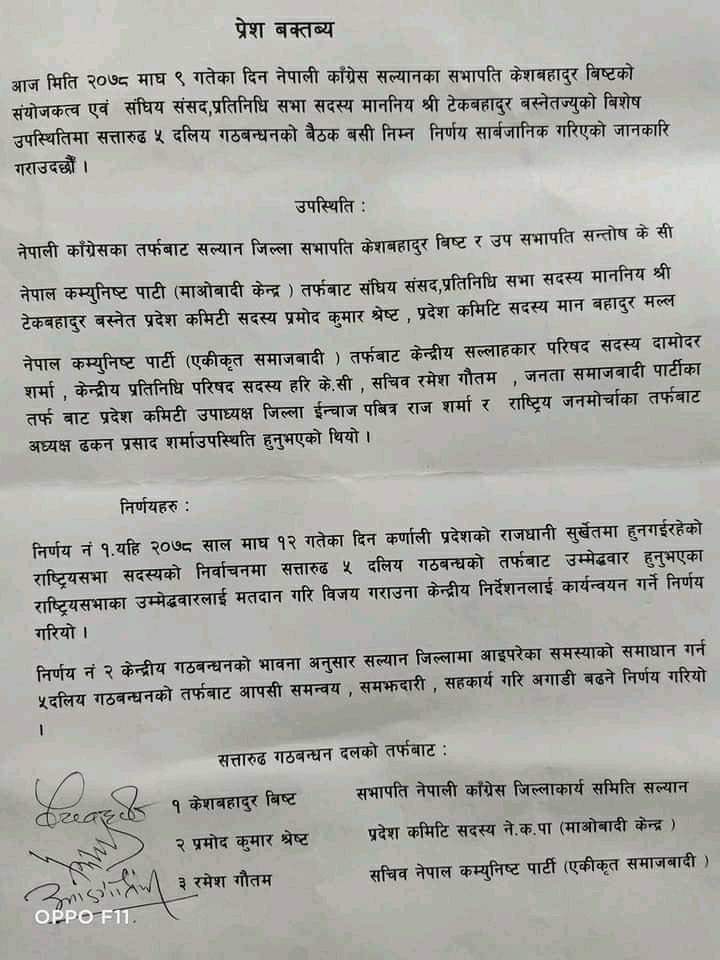 प्रेश बक्तब्य
आज मिति २०७८ माघ ९ गतेका दिन नेपाली काँग्रेस सल्यानका सभापति केशबहादुर बिष्टको
संयोजकत्व एवं संघिय संसद,प्रतिनिधि सभा सदस्य माननिय श्री टेकबहादुर बस्नेतज्युको बिशेष
उपस्थितिमा सत्तारुढ ५ दलिय गठबन्धनको बैठक बसी निम्न निर्णय सार्बजानिक गरिएको जानकारि
गराउदछौँ ।
उपस्थिति :
नेपाली काँग्रेसका तर्फबाट सल्यान जिल्ला सभापति केशबहादुर बिष्ट र उप सभापति सन्तोष के सी
नेपाल कम्युनिष्ट पाटी (माओबादी केन्द्र ) तर्फबाट संघिय संसद,प्रतिनिधि सभा सदस्य माननिय श्री
टेकबहादुर बस्नेत प्रदेश कमिटी सदस्य प्रमोद कुमार श्रेष्ट , प्रदेश कमिटि सदस्य मान बहादुर मल्ल
नेपाल कम्युनिष्ट पार्टी (एकीकृत समाजबादी ) तर्फबाट केन्द्रीय सल्लाहकार परिषद सदस्य दामोदर
शर्मा , केन्द्रीय प्रतिनिधि परिषद सदस्य हरि के.सी , सचिव रमेश गौतम , जनता समाजबादी पार्टीका
तर्फ बाट प्रदेश कमिटी उपाध्यक्ष जिल्ला ईन्चाज पबित्र राज शर्मा र राष्ट्रिय जनमोर्चाका तर्फबाट
अध्यक्ष ढकन प्रसाद शर्माउपस्थिति हुनुभएको थियो ।
निर्णयहरु :
निर्णय नं १.यहि २०७८ साल माघ १२ गतेका दिन कर्णाली प्रदेशको राजधानी सुर्खेतमा हुनगईरहेको
राष्ट्रियसभा सदस्यको निर्वाचनमा सत्तारुढ ५ दलिय गठबन्धको तर्फबाट उम्मेद्धवार हुनुभएका
राष्ट्रियसभाका उम्मेद्धवारलाई मतदान गरि विजय गराउना केन्द्रीय निर्देशनलाई कार्यन्वयन गर्ने निर्णय
गरियो ।
निर्णय नं २ केन्द्रीय गठबन्धनको भावना अनुसार सल्यान जिल्लामा आइपरेका समस्याको समाधान गर्न
५दलिय गठबन्धनको तर्फबाट आपसी समन्वय , समझदारी , सहकार्य गरि अगाडी बढने निर्णय गरियो
।
सत्तारुढ गठबन्धन दलको तर्फबाट :
१ केशबहादुर बिष्ट सभापति नेपाली काँग्रेस जिल्लाकार्य समिति सल्यान
२ प्रमोद कुमार श्रेष्ट प्रदेश कमिटि सदस्य ने.क.पा (माओबादी केन्द्र )
३ रमेश गौतम सचिव नेपाल कम्युनिष्ट पार्टी (एकीकृत समाजबादी )
OPPO F11